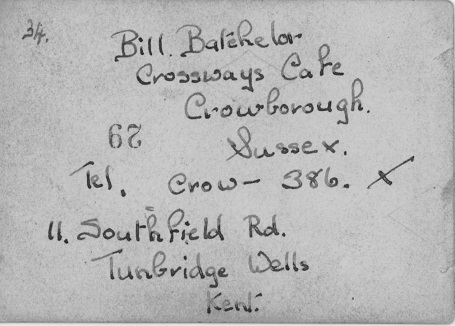 34.
Bill. Batchelor
Crossways Cafe
Crowborough.
29
Sussex.
Tel. Crow- 386. X
11. Southfield Rd.
Tunbridge Wells
Kent.